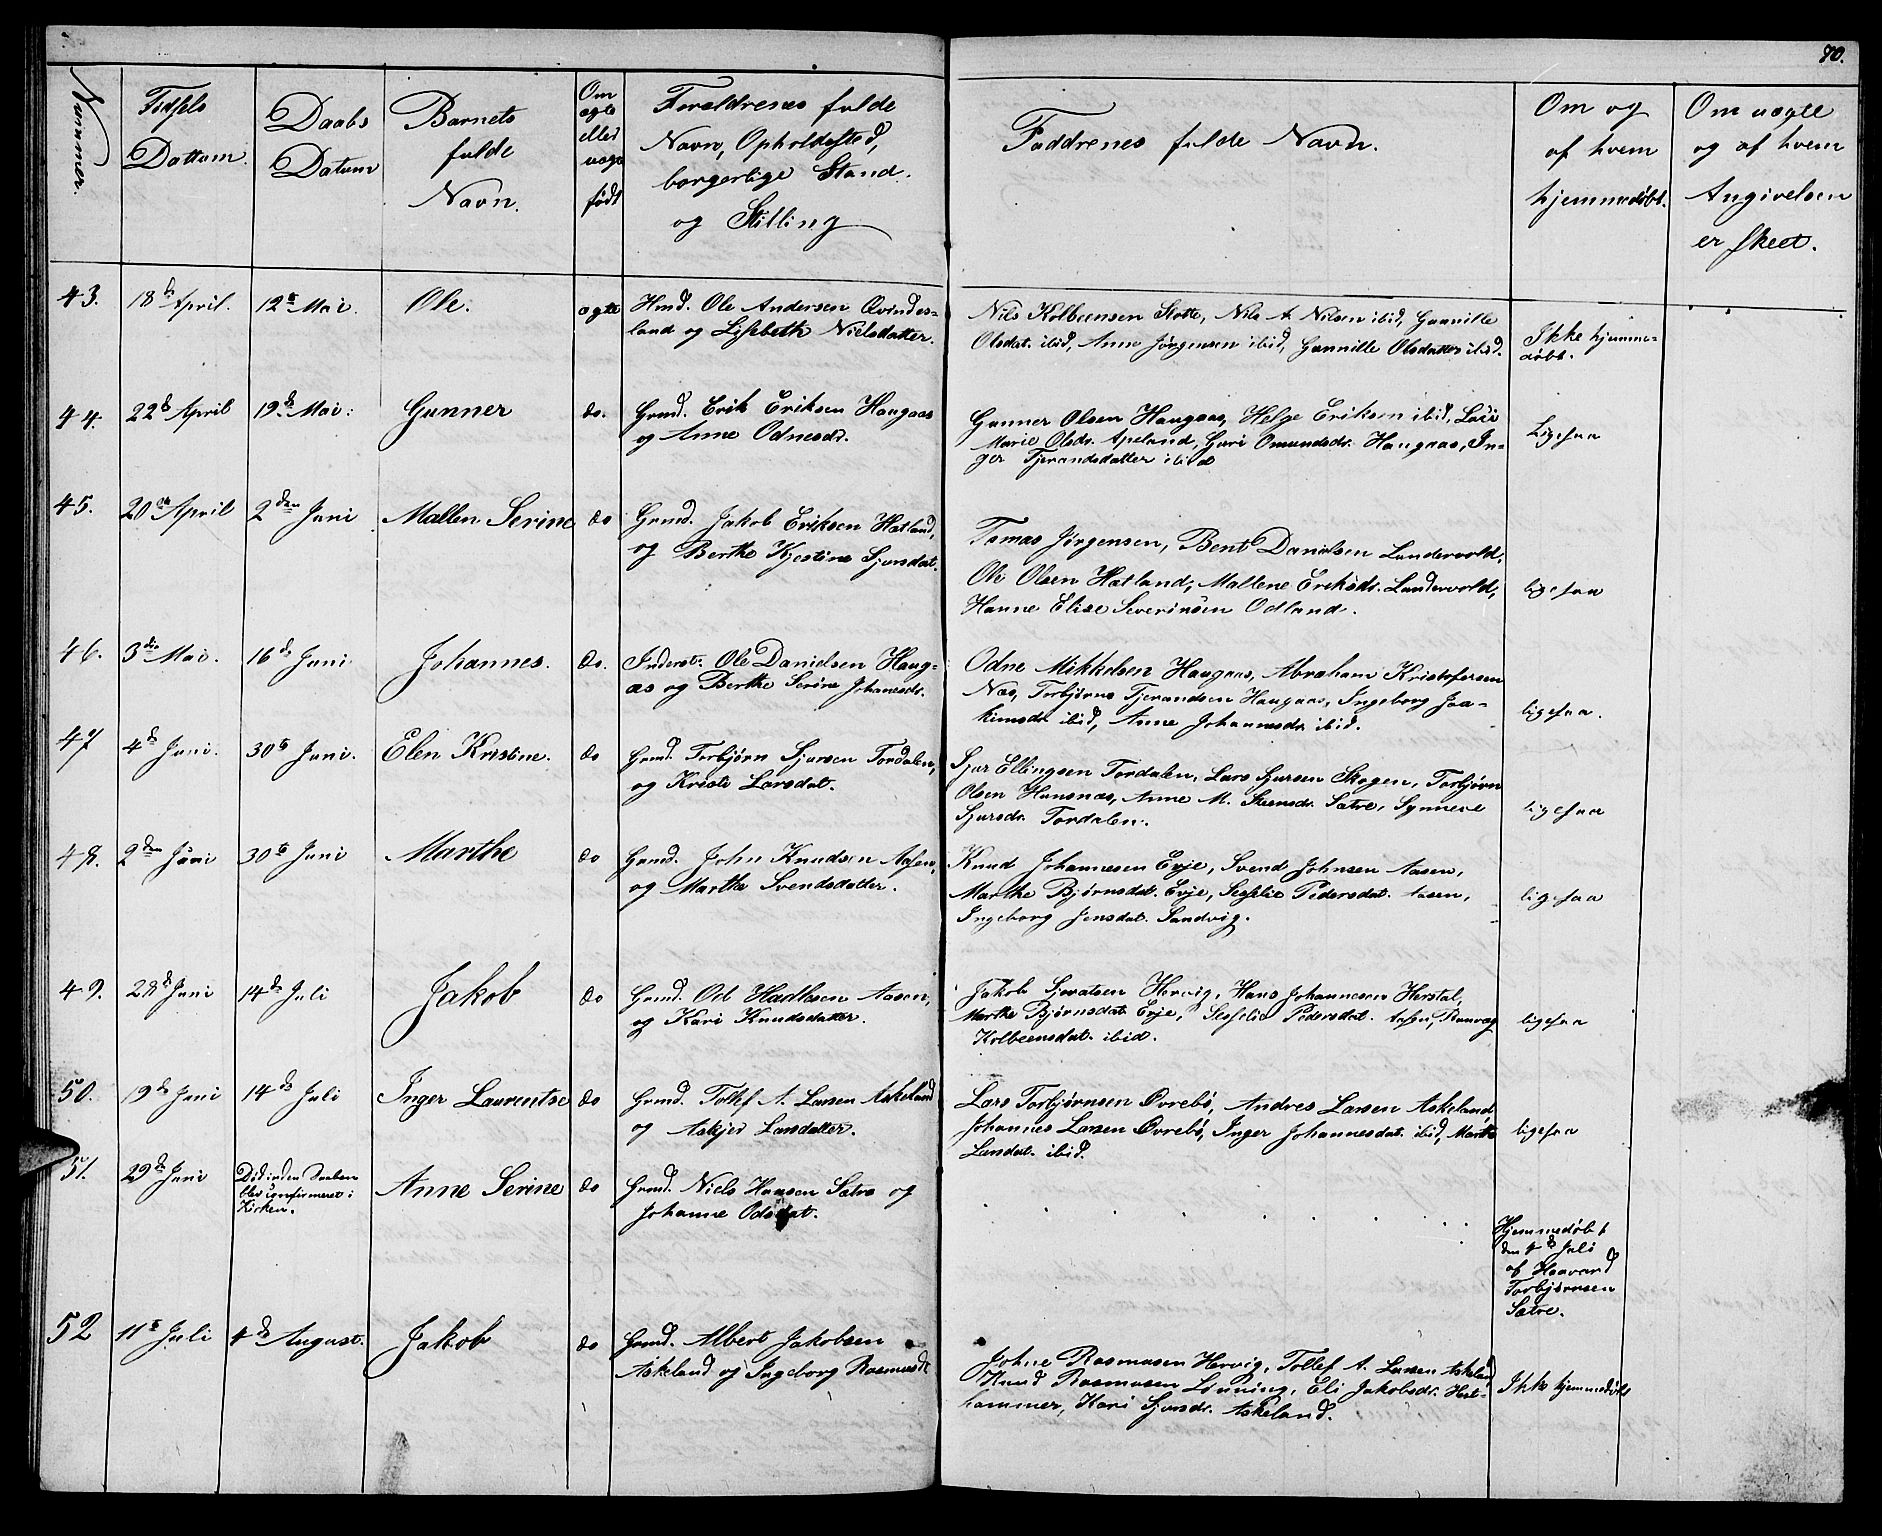 70.
Nummer.
Fødsels
Dattum.
Daabs
Datum
Barnets
fulde
Navn.
Om
ægte
eller
uægte
født
Forældrenes fulde
Navn, Opholdssted,
borgerlige Stand.
og Stilling
Faddrenes fulde Navn.
Om og
af hvem
hjemmedøbt.
Om uægte
og af hvem
Angivelsen
er skeet.
43. 18d April. 12te Mai. Ole. ægte
Hmd. Ole Andersen Qvindes-
land og Lisebeth Nielsdatter.
Nils Kolbeensen Slotte, Nils A Nilsen ibid, Gunnille
Olsdat. ibid, Anne Jørgensen ibid, Gunnille Olsdatter ibid.
Ikke hjemme-
døbt.
44. 22d April 19d Mai. Gunner do.
Grmd. Erik Eriksen Haugaas
og Anne Odnesdr.
Gunner Olsen Haugaas, Helge Eriksen ibid,
Marie Olsdr. Apeland, Guri Omundsdr. Haugaas, In-
ger Tjerandsdatter ibid
Ligesaa
45. 20de April 2den Juni Mallen Serine do
Grmd. Jakob Eriksen Hatland,
og Berthe Kjestine Sjursdat.
Tomas Jørgensen, Bent Danielsen Landervold,
Ole Olsen Hatland, Mallene Eriksdr. Landervold,
Hanne Elise Severinsen Odland.
ligesaa
46. 3die Mai. 16d Juni Johannes. do.
Inderst. Ole Danielsen Haug-
as og Berthe Serine Johansdr.
Odne Mikkelsen Haugaas, Abraham Kristofersen
Næs, Torbjørns Tjerandsen Haugaas, Ingeborg Joa-
kimsdr ibid, Anne Johannesdr ibid.
ligesaa.
47 4d Juni. 30te Juni. Elen Kristine. do
Grmd. Torbjørn Sjursen Tordalen,
og Kristi Larsdat.
Sjur Ellingsen Tordalen, Lars Sjursen Skogen, Torbjørn
Olsen Hunsnæs, Anne M. Steensdr. Sætre, Synneve
Sjursdr Tordalen.
ligesaa
48. 2den Juni 30te Juni Marthe do
Grmd. John Knudsen Aasen,
og Marthe Svendsdatter.
Knud Johannesen Evje, Svend Johnsen Aasen,
Marthe Bjørnsdat. Evje, Seselie Pedersdat. Aasen,
Ingeborg Jensdat. Sandvig.
ligesaa
49. 28d Juni 14d Juli Jakob do
Grmd. Od Hadlesen Aasen,
og Kari Knudsdatter.
Jakob Sjovatsen Hervig, Hans Johannesen Herstal,
Marthe Bjørnsdat. Evje, Seselie Pedersdat. Aasen, Ranvog
Kolbeensdat. ibid.
ligesaa
50. 19d Juni 14d Juli Inger Laurentse do
Grmd. Tollef A. Larsen Askeland
og Askjer Larsdatter.
Lars Torbjørnsen Øvrebø, Andres Larsen Askeland
Johannes Larsen Øvrebø, Inger Johannesdat. ibid, Marthe
Larsdat. ibid.
ligesaa
51. 29d Juni Død inden Daaben
blev confirmeret i
Kirken.
Anne Serine do
Grmd. Niels Hansen Sætre og
Johanne Odsdat.
Hjemmedøbt
den 4d Juli
af Haavard
Torbjørnsen
Sætre.
52 11te Juli 4d August. Jakob do
Grmd. Albert Jakobsen
Askeland og Ingeborg Rasmusdt
Johne Rasmusen Hervig, Tollef A. Larsen Askeland
Knud Rasmusen Lønning, Eli Jakobsdr. Hest-
hammer, Kari Sjursdr. Askeland.
Ikke hjemmedøbt